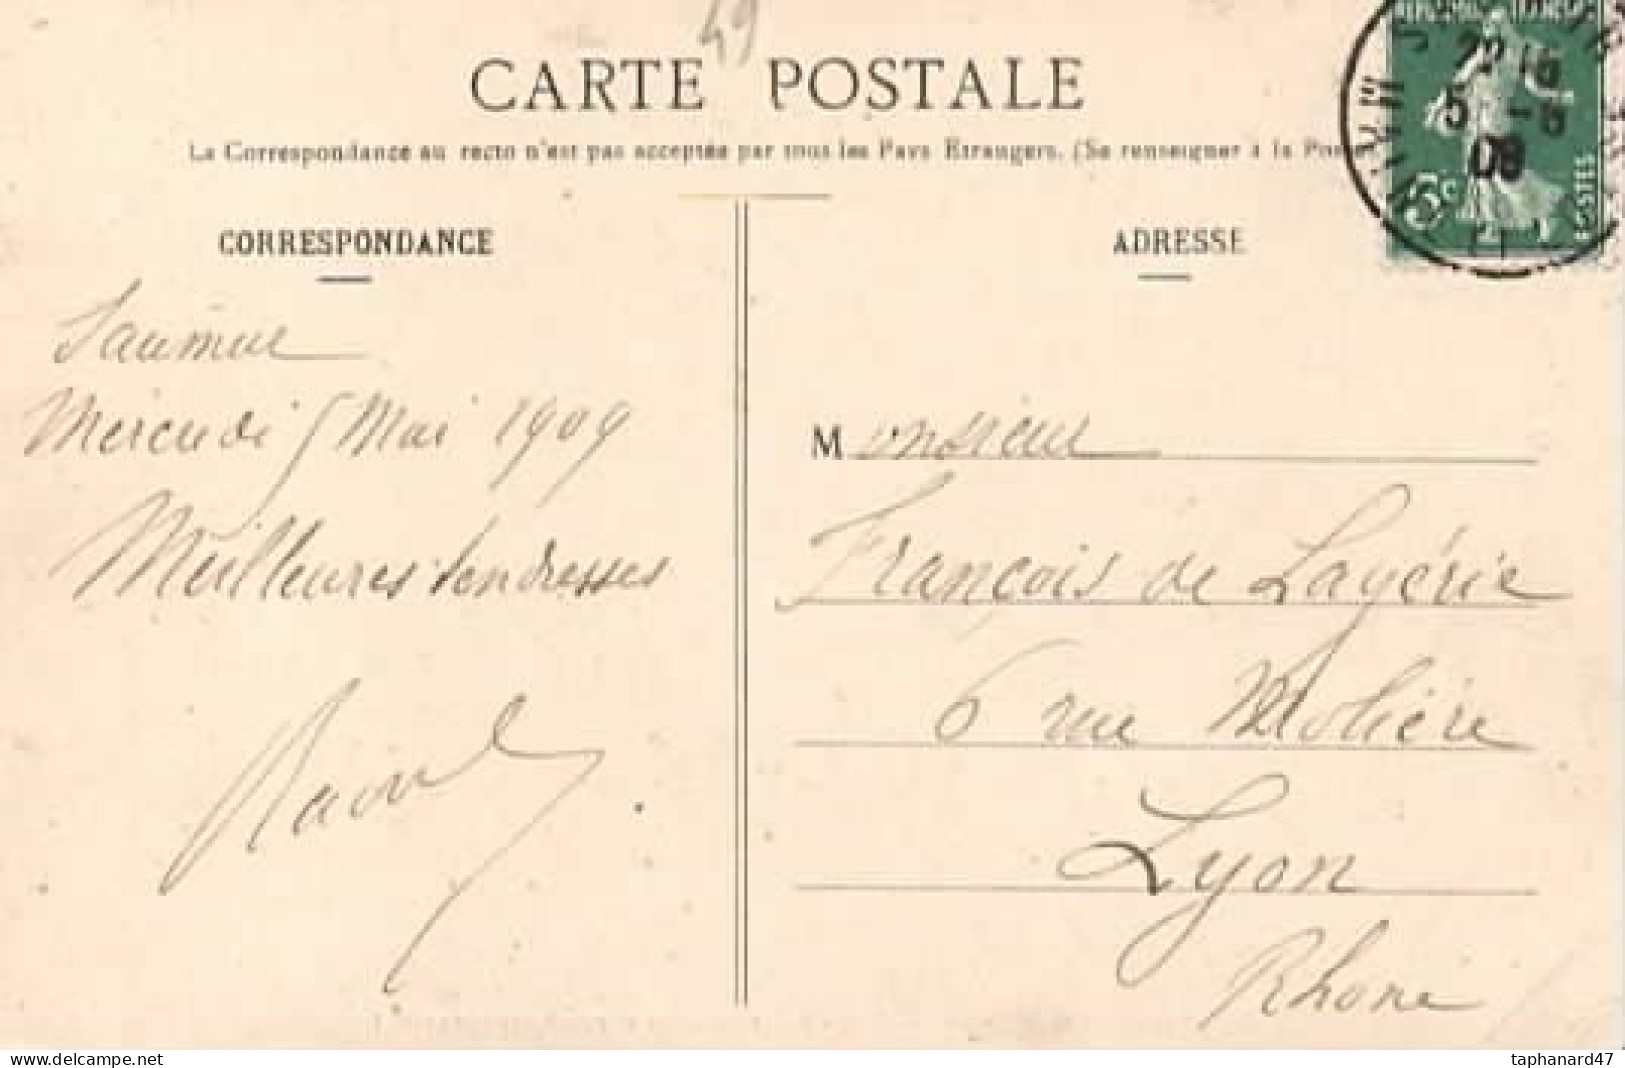 49
CARTE POSTALE
La Correspondance au recto n'est pas acceptée par tous les Pays Etrangers. (Se renseigner à la Pos
CORRESPONDANCE
Saumur
Mercredi 5 Mai 1909
Meilleures tendresses
Raoul
ADRESSE
Monsieur
François de Layérie
6 rue Molière
Lyon
Rhône
22
5 -5
09
5c
POSTES
taphanard47